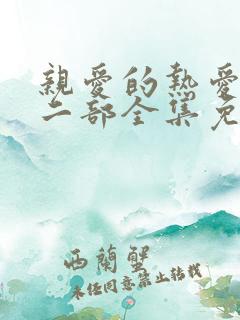 親愛的熱愛
二部全集免
西蘭蟹
未经同意禁止转载